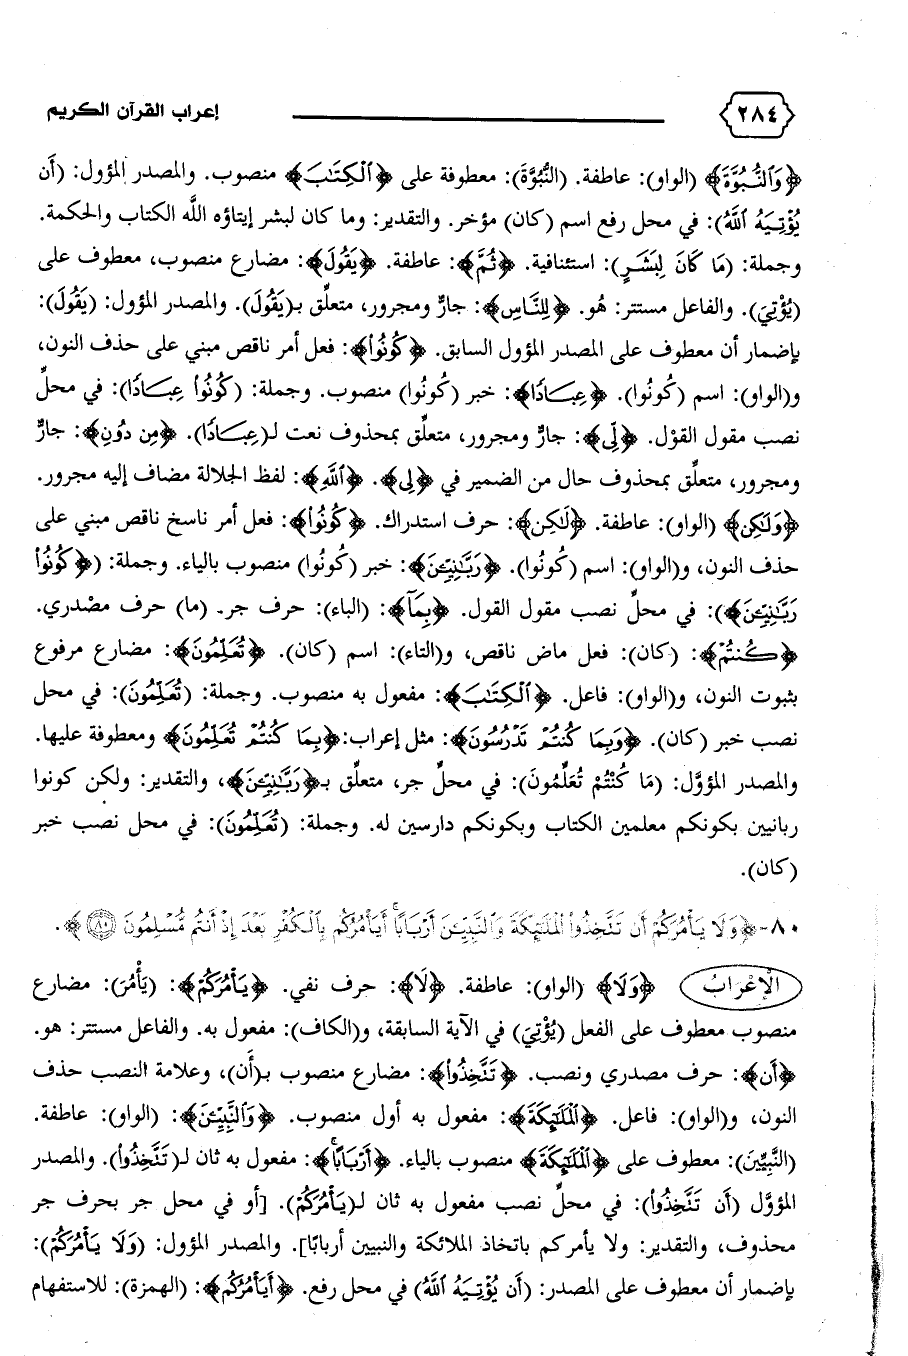 ٢٨٤ إعراب القرآن الكريم
﴿وَٱلنُّبُوَّةَ﴾ (الواو): عاطفة. (النُّبُوَّةَ): معطوفة على ﴿ٱلْكِتَٰبَ﴾ منصوب. والمصدر المؤول: (أَن
يُؤْتِيَهُ ٱللَّهُ): في محل رفع اسم (كان) مؤخر. والتقدير: وما كان لبشر إيتاؤه اللَّه الكتاب والحكمة.
وجملة: (مَا كَانَ لِبَشَرٍ): استئنافية. ﴿ثُمَّ﴾: عاطفة. ﴿يَقُولَ﴾: مضارع منصوب، معطوف على
(يُؤْتِيَ). والفاعل مستتر: هُو. ﴿لِلنَّاسِ﴾: جارٌّ ومجرور، متعلِّق بـ(يَقُولَ). والمصدر المؤول: (يَقُولَ):
بإضمار أن معطوف على المصدر المؤول السابق. ﴿كُونُوا۟﴾: فعل أمر ناقص مبني على حذف النون،
و(الواو): اسم (كُونُوا). ﴿عِبَادًا﴾: خبر (كُونُوا) منصوب. وجملة: (كُونُوا۟ عِبَادًا): في محلِّ
نصب مقول القوْل. ﴿لِّى﴾: جارٌّ ومجرور، متعلِّق بمحذوف نعت لـ(عِبَادًا). ﴿مِن دُونِ﴾: جارٌّ
ومجرور، متعلِّق بمحذوف حال من الضمير في ﴿لِي﴾. ﴿ٱللَّهِ﴾: لفظ الجلالة مضاف إليه مجرور.
﴿وَلَٰكِن﴾ (الواو): عاطفة. ﴿لَٰكِن﴾: حرف استدراك. ﴿كُونُوا۟﴾: فعل أمر ناسخ ناقص مبني على
حذف النون، و(الواو): اسم (كُونُوا). ﴿رَبَّٰنِيِّـۧنَ﴾: خبر (كُونُوا) منصوب بالياء. وجملة: (﴿كُونُوا۟
رَبَّٰنِيِّـۧنَ﴾): في محلِّ نصب مقول القول. ﴿بِمَآ﴾: (الباء): حرف جر. (ما) حرف مصْدري.
﴿كُنتُمْ﴾: (كان): فعل ماض ناقص، و(التاء): اسم (كان). ﴿تُعَلِّمُونَ﴾: مضارع مرفوع
بثبوت النون، و(الواو): فاعل. ﴿ٱلْكِتَٰبَ﴾: مفعول به منصوب. وجملة: (تُعَلِّمُونَ): في محل
نصب خبر (كان). ﴿وَبِمَا كُنتُمْ تَدْرُسُونَ﴾: مثل إعراب:﴿بِمَا كُنتُمْ تُعَلِّمُونَ﴾ ومعطوفة عليها.
والمصدر المؤوَّل: (مَا كُنْتُمْ تُعَلِّمُونَ): في محلِّ جر، متعلِّق بـ﴿رَبَّٰنِيِّـۧنَ﴾، والتقدير: ولكن كونوا
ربانيين بكونكم معلمين الكتاب وبكونكم دارسين له. وجملة: (تُعَلِّمُونَ): في محل نصب خبر
(كان).
٨٠-﴿وَلَا يَأْمُرَكُمْ أَن تَتَّخِذُوا۟ ٱلْمَلَٰٓئِكَةَ وَٱلنَّبِيِّـۧنَ أَرْبَابًا ۗ أَيَأْمُرُكُم بِٱلْكُفْرِ بَعْدَ إِذْ أَنتُم مُّسْلِمُونَ ٨٠﴾.
الْإِعْرَابُ ﴿وَلَا﴾ (الواو): عاطفة. ﴿لَا﴾: حرف نفي. ﴿يَأْمُرَكُمْ﴾: (يَأْمُرَ): مضارع
منصوب معطوف على الفعل (يُؤْتِيَ) في الآية السابقة، و(الكاف): مفعول به. والفاعل مستتر: هو.
﴿أَن﴾: حرف مصدري ونصب. ﴿تَتَّخِذُوا۟﴾: مضارع منصوب بـ(أَن)، وعلامة النصب حذف
النون، و(الواو): فاعل. ﴿ٱلْمَلَٰٓئِكَةَ﴾: مفعول به أول منصوب. ﴿وَٱلنَّبِيِّـۧنَ﴾: (الواو): عاطفة.
(النَّبِيِّينَ): معطوف على ﴿ٱلْمَلَٰٓئِكَةَ﴾ منصوب بالياء. ﴿أَرْبَابًا ۗ﴾: مفعول به ثان لـ(تَتَّخِذُوا۟). والمصدر
المؤوَّل (أَن تَتَّخِذُوا۟): في محلِّ نصب مفعول به ثان لـ(يَأْمُرَكُمْ). [أو في محل جر بحرف جر
محذوف، والتقدير: ولا يأمركم باتخاذ الملائكة والنبيين أربابًا]. والمصدر المؤول: (وَلَا يَأْمُرَكُمْ):
بإضمار أن معطوف على المصدر: (أَن يُؤْتِيَهُ ٱللَّهُ) في محل رفع. ﴿أَيَأْمُرُكُم﴾: (الهمزة): للاستفهام